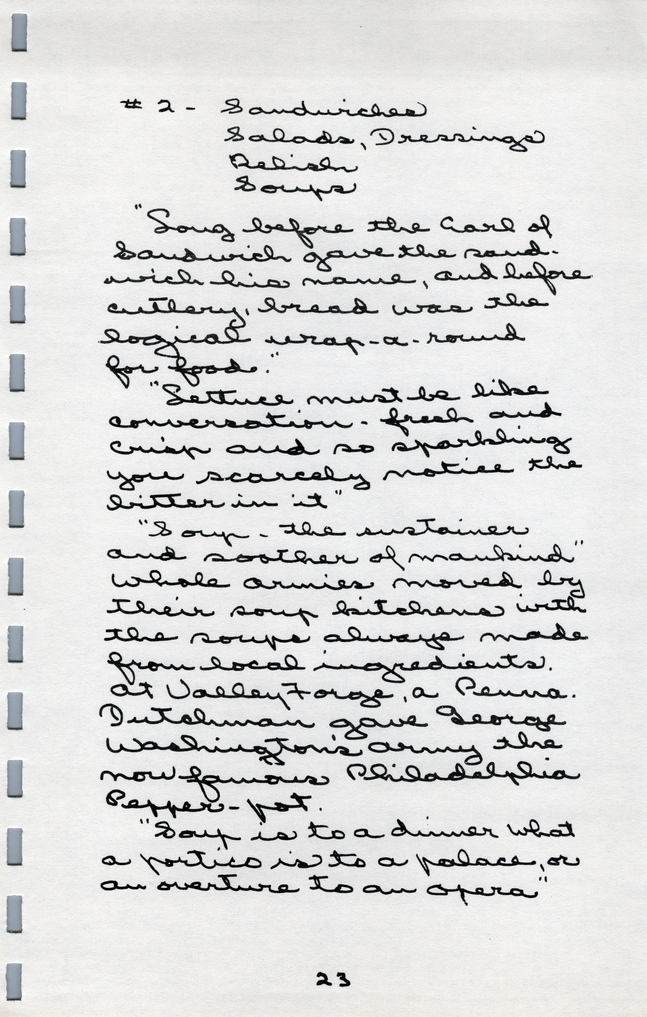 # 2 - Sandwiches
Salads, Dressings
Relish
Soups
"Long before the Earl of
Sandwich gave the sand-
wich his name, and before
cutlery, bread was the
logical wrap-a-round
for food."
"Lettuce must be like
conversation - fresh and
crisp and so sparkling
you scarcely notice the
bitter in it"
"Soup - the sustainer
and soother of mankind"
Whole armies moved by
their soup kitchens with
the soups always made
from local ingredients.
At Valley Forge, a Penna.
Dutchman gave George
Washington's army the
now famous Philadelphia
Pepper-pot.
"Soup is to a dinner what
a portico is to a palace, or
an overture to an opera"
23